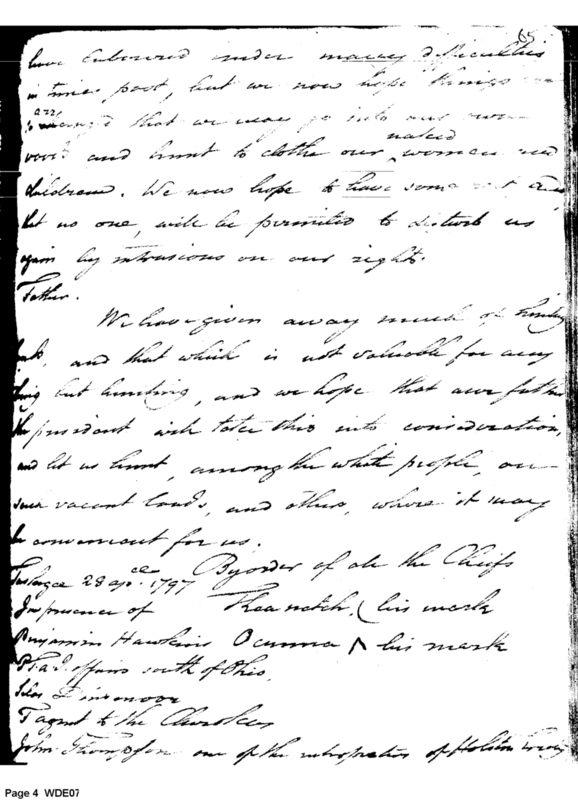 65
have laboured under many difficulties
in times past, but we now hope things
are
so arranged that we may go into our own
naked
woods and hunt to clothe our ^ women and
children. We now hope to have some rest and
that no one, will be permitted to disturb us
again by intrusions on our rights.
Father.
We have given away much of hunting
lands, and that which is not valuable for any
thing but hunting, and we hope that our father
the president will take this into consideration,
and let us hunt, among the white people, on
such vacant lands, and others, where it may
be convenient for us.
By order of all the Chiefs
28 apr. 1797
In presence of his mark
Benjamin Hawkins Ocunna ʌ his mark
affairs south of Ohio,
Silas Dinsmoor
T agent to the Cherokees
John Thompson one of the interpreters of Holston treaty
Page 4 WDE07